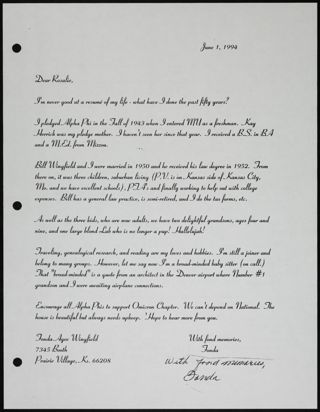 June 1, 1994
Dear Rosalie,
I'm never good at a resumé of my life - what have I done the past fifty years?
I pledged Alpha Phi in the Fall of 1943 when I entered MU as a freshman. Kay
Herrick was my pledge mother. I haven't seen her since that year. I received a B.S. in BA
and a M.Ed. from Mizzou.
Bill Wingfield and I were married in 1950 and he received his law degree in 1952. From
there on, it was three children, suburban living (P.V. is in Kansas side of Kansas City,
Mo. and we have excellent schools), PTA's and finally working to help out with college
expenses. Bill has a general law practice, is semi-retired, and I do the tax forms, etc.
As well as the three kids, who are now adults, we have two delightful grandsons, ages four and
nine, and one large blond Lab who is no longer a pup! Hallelujah!
Traveling, genealogical research, and reading are my loves and hobbies. I'm still a joiner and
belong to many groups. However, let me say now I'm a broad-minded baby sitter (on call.)
That "broad-minded" is a quote from an architect in the Denver airport where Number #1
grandson and I were awaiting airplane connections.
Encourage all Alpha Phis to support Omicron Chapter. We can't depend on National. The
house is beautiful but always needs upkeep. Hope to hear more from you.
Fonda Ager Wingfield
7345 Booth
Prairie Village, Ks. 66208
With fond memories,
Fonda
With fond memories,
Fonda